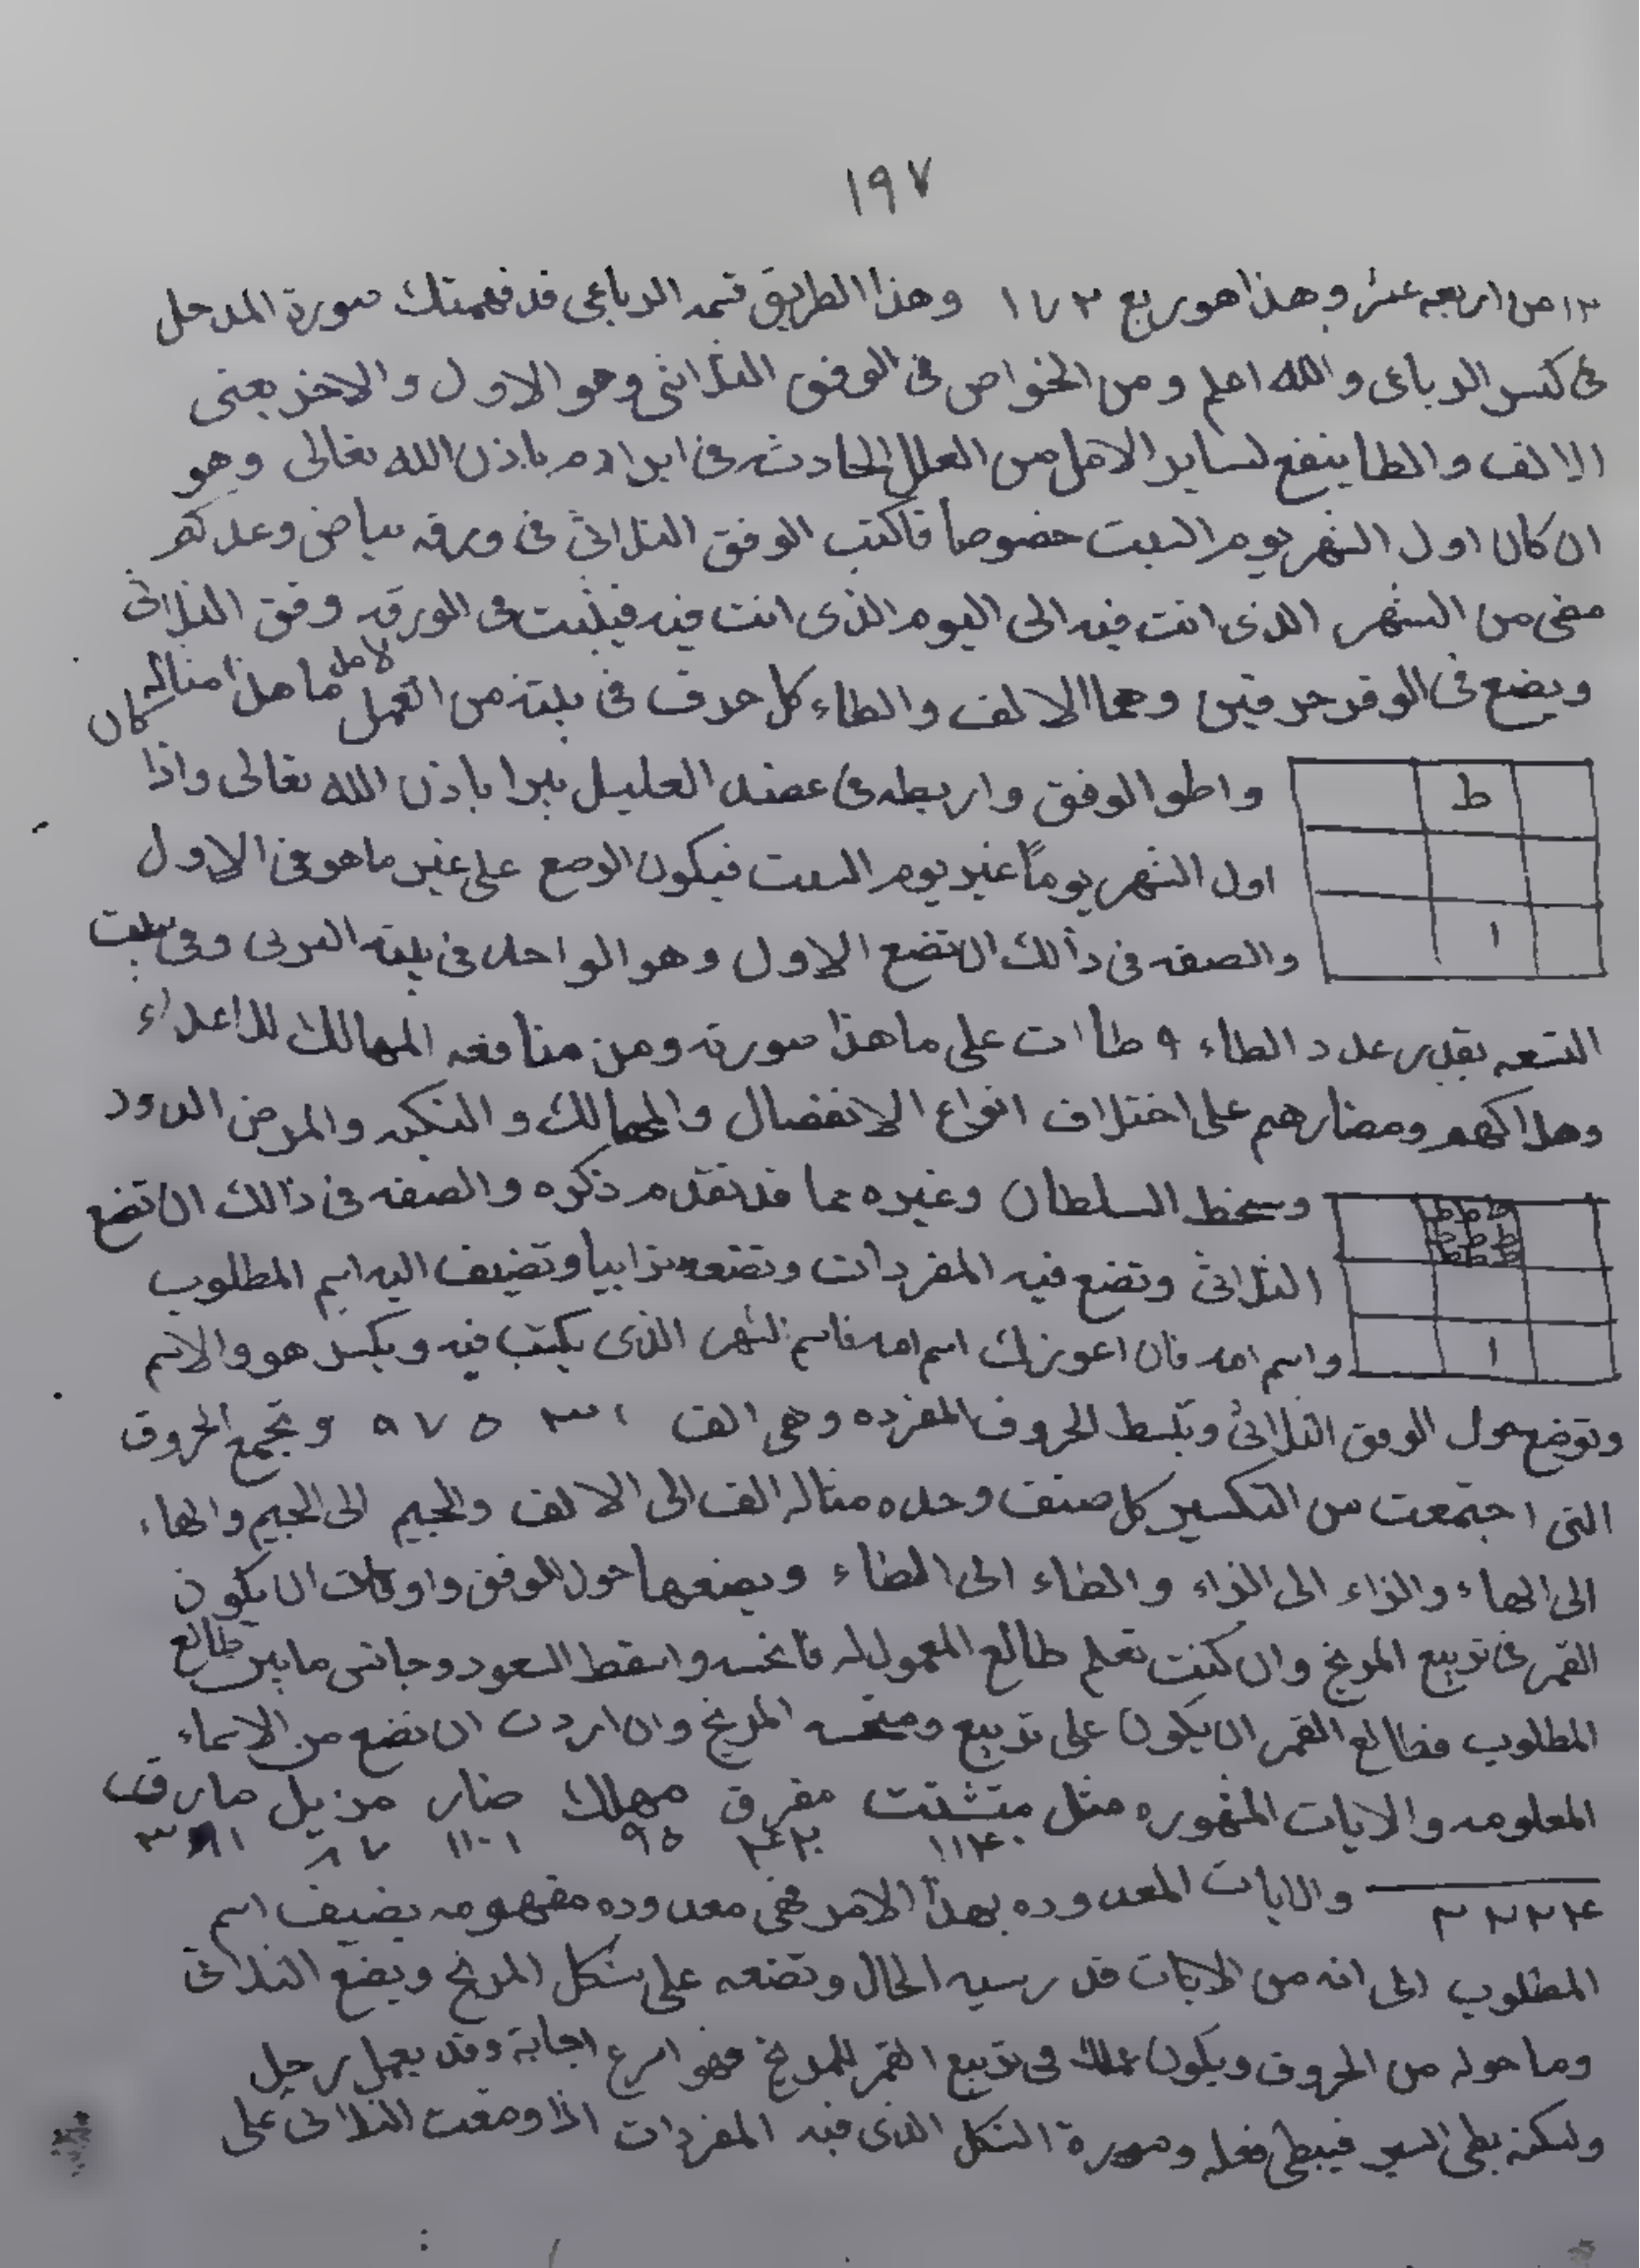 ١٩٧
١٣ من اربعه عشر وهذا هو ربع ١٧٣ وهذا الطريق تتمه الرباعى قد فهمتك صورة المدخل
فى كسر الرباعى والله اعلم ومن الخواص فى الوفق الثلاثى وهو الاول والاخر يعنى
الالف والطا ينفع لساير الاهل من العلل الحادثه فى ابرادم باذن الله تعالى وهو
ان كان اول الشهر يوم السبت خصوصا فاكتب الوفق الثلاثى فى ورقه بياض وعدكم
مضى من الشهر الذى انت فيه الى اليوم الذى انت فيه فيثبت فى الورقه وفق الثلاثى
ويضع فى الوفق حرفين وهما الالف والطاء كل حرف فى بيته من العمل لامل ما هذا مثاله كان
ط
واطو الوفق واربطه فى عضد العليل يبرا باذن الله تعالى واذا
اول الشهر يوماً غير يوم السبت فيكون الوضع على غير ما هو فى الاول
ا
والصفه فى ذالك ان تضع الاول وهو الواحد فى بيته العربى وفى بيت
التسعه بقدر عدد الطاء ٩ طاات على ما هذا صورته ومن منافعه المهالك للاعداء
وهلاكهم ومضارهم على اختلاف انواع الانفصال والمهالك والنكبه والمرض
ط ط ط
ط ط ط
ط ط ط
وسخط السلطان وغيره مما قد تقدم ذكره والصفه فى ذالك ان تضع
الثلاثى وتضع فيه المفردات وتضعه ترابيا وتضيف اليه اسم المطلوب
ا
واسم امه فان اعوزك اسم امه فاسم الشهر الذى يكتب فيه ويكسر هو والاسم
وتوضع حول الوفق الثلاثى وتبسط الحروف المفرده وهى الف ١ ٣ ٥ ٧ ٩ وتجمع الحروف
التى اجتمعت من التكسير كل صنف وحده مثاله الف الى الالف والجيم الى الجيم والهاء
الى الهاء والزاء الى الزاء والطاء الى الطاء ويضعها حول الوفق واوقات ان يكون
القمر فى تربيع المريخ وان كنت تعلم طالع المعمول له فانحسه واسقط السعود وجانس ما بين طالع
المطلوب فطالع القمر ان يكون على تربيع ومنحسه المريخ وان اردت ان تضع من الاسماء
المعلومه والايات المشهوره مثل متشتت مفرق مهلك ضار مزيل مارق
١١٤٠ ٤٢٠ ٩٥ ١١٠١ ٨٧ ٣٨١
٣٢٢٤ والايات المعدوده بهذا الامر فهى معدوده مفهومه يضيف اسم
المطلوب الى انه من الايات قد رسيه الحال وتضعه على شكل المريخ ويضع الثلاثى
وما حوله من الحروف ويكون عملك فى تربيع القمر للمريخ فهو اسرع اجابة وقد يعمل زحل
ولكنه بطى السير فيبطى فعله وصورة الشكل الذى فيه المفردات اذا وضعت الثلاثى على